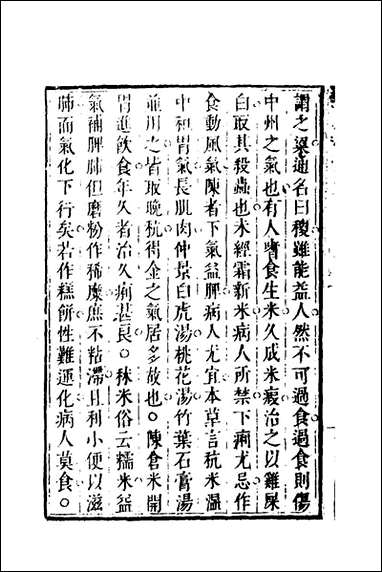 謂之粱通名曰稷雖能益人然不可過食過食則傷
中州之氣也有人嗜食生米久成米瘕治之以雞屎
白取其殺蟲也米經霜新米病人所禁下痢尤忌作
食動風氣陳者下氣益脾病人尤宜本草言秔米溫
中和胃氣長肌肉仲景白虎湯桃花湯竹葉石膏湯
並用之皆取晚秔得金之氣居多故也○陳倉米開
胃進飲食年久者治久痢甚良○秫米俗云糯米益
氣補脾肺但磨粉作稀糜庶不粘滯且利小便以滋
肺而氣化下行矣若作糕餅性難運化病人莫食○